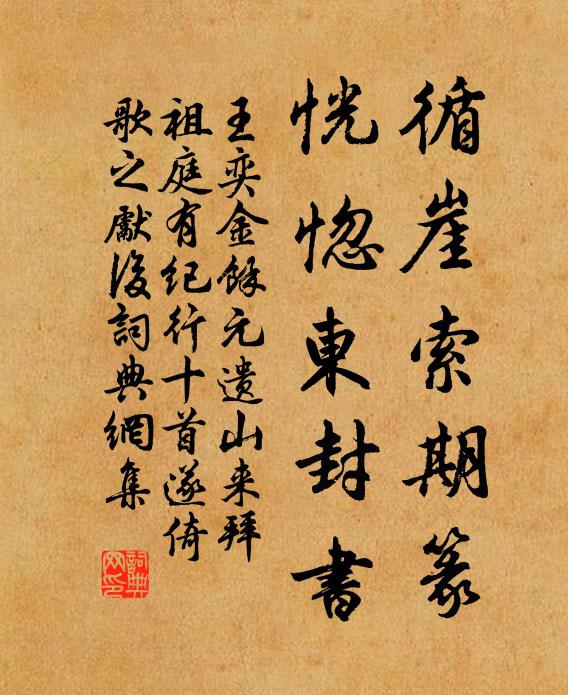 循崖索期篆
恍惚東封書
王奕金餘元遺山来拜
祖庭有紀行十首遂倚
歌之獻後詞典網集
詞典網印